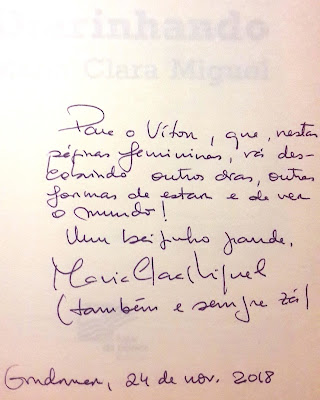 Clara Miguel
Para o Vítor, que, nestas
páginas femininas, vá des-
cobrindo outros dias, outras
formas de estar e de ver
o mundo!
Um beijinho grande,
Maria Clara Miguel
(também e sempre Zá)
Gondomar, 24 de nov. 2018